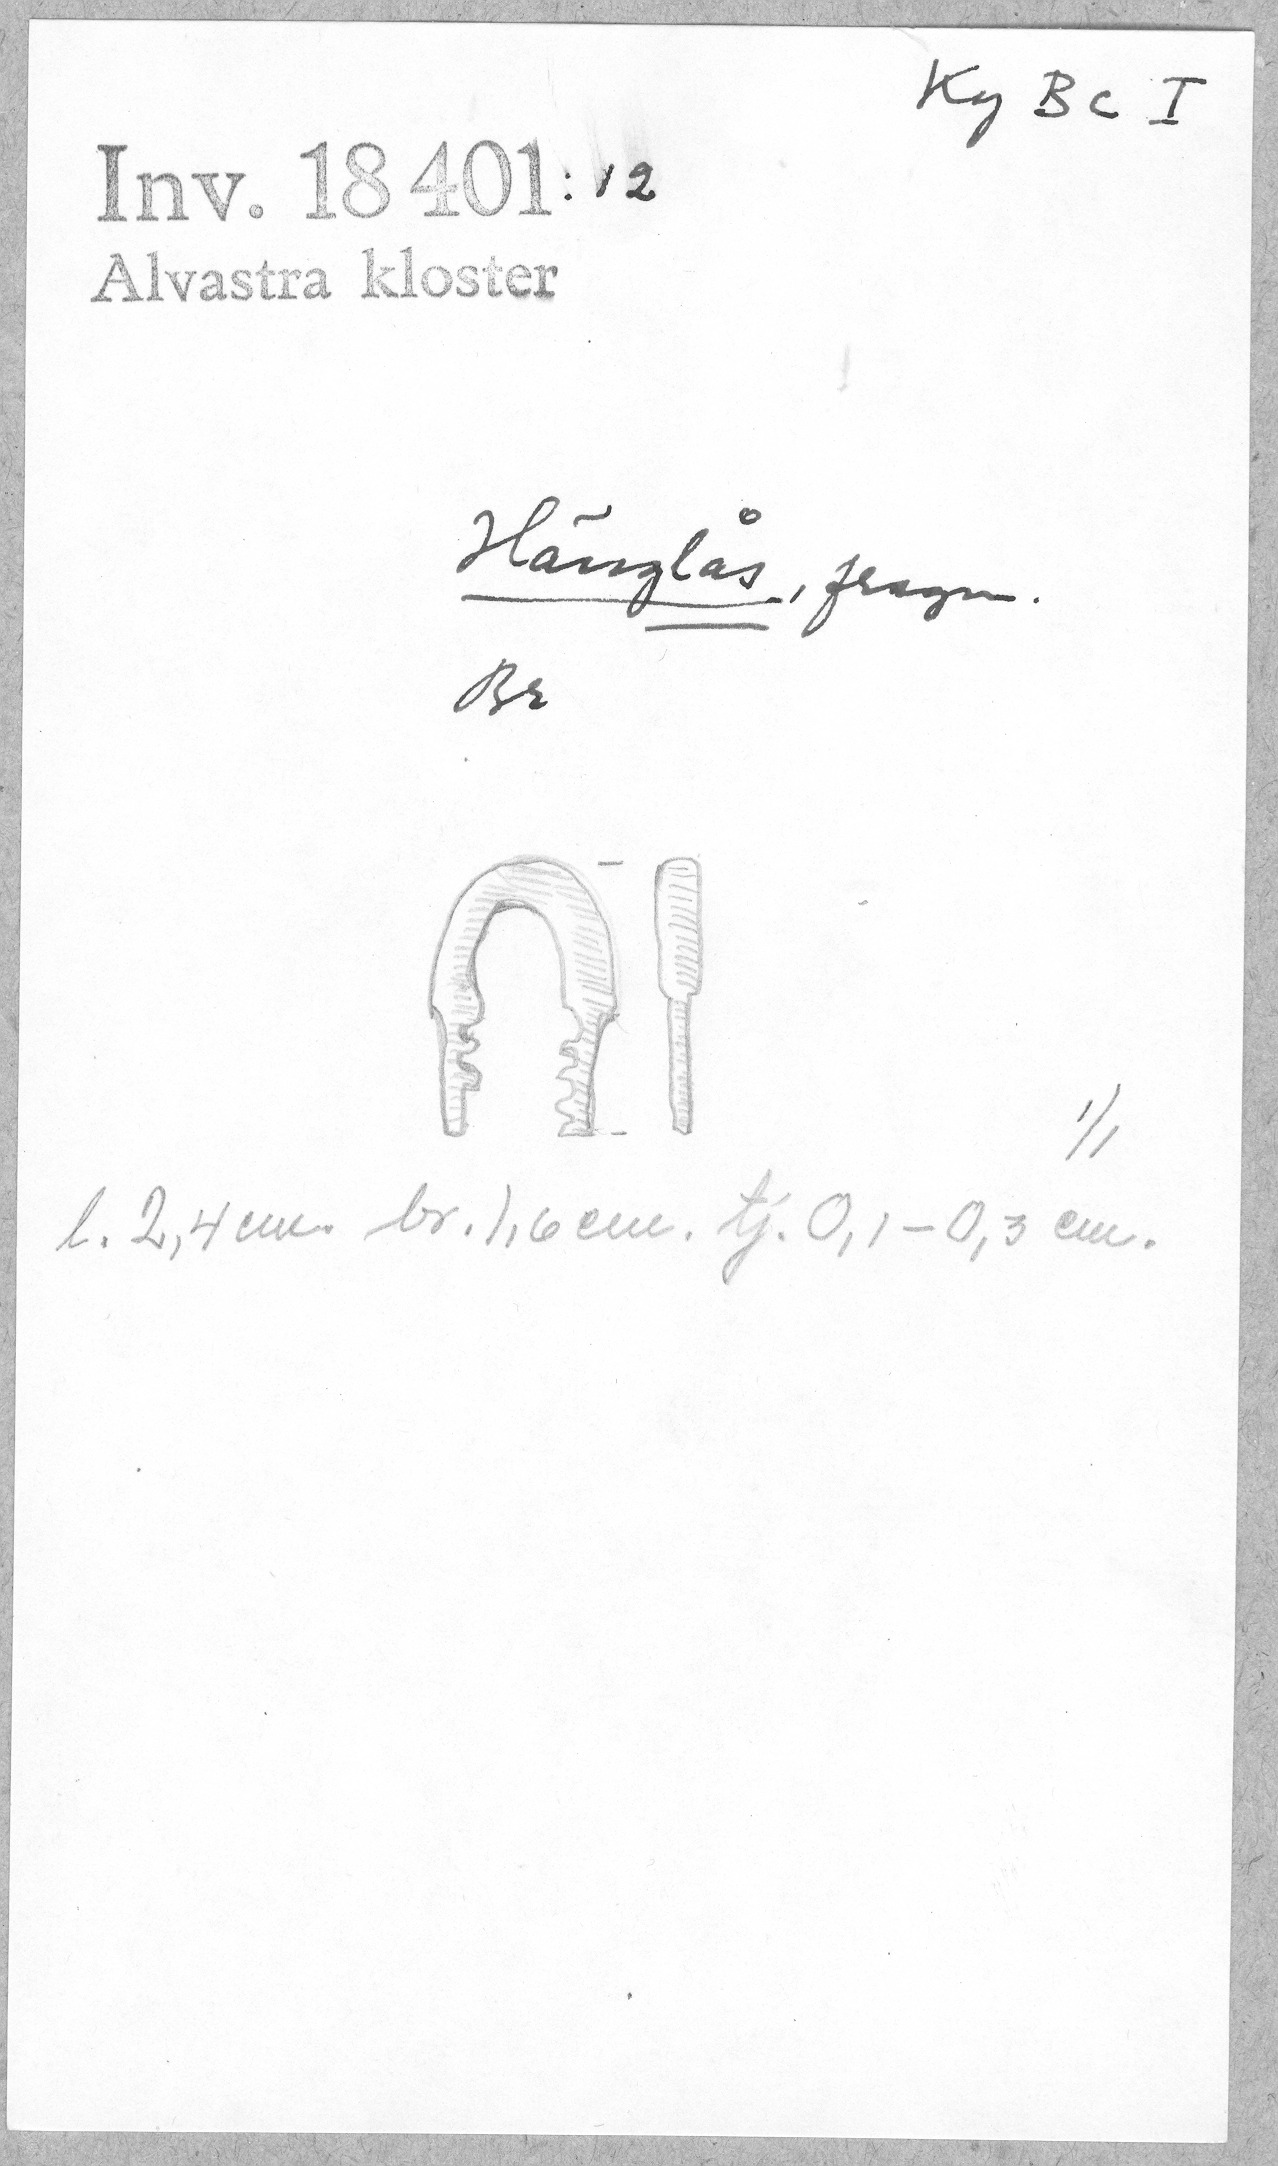 Ky B c I
Inv. 18 401 : 12
Alvastra kloster
Hänglås, fragm.
Br
1/1
l. 2,4 cm. br. 1,6 cm. tj. 0,1 – 0,3 cm.